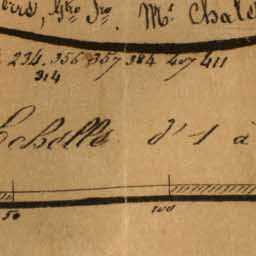 Mr Chale
234. 356 357 384 407 411
314
Echelle d' 1 à
50 100